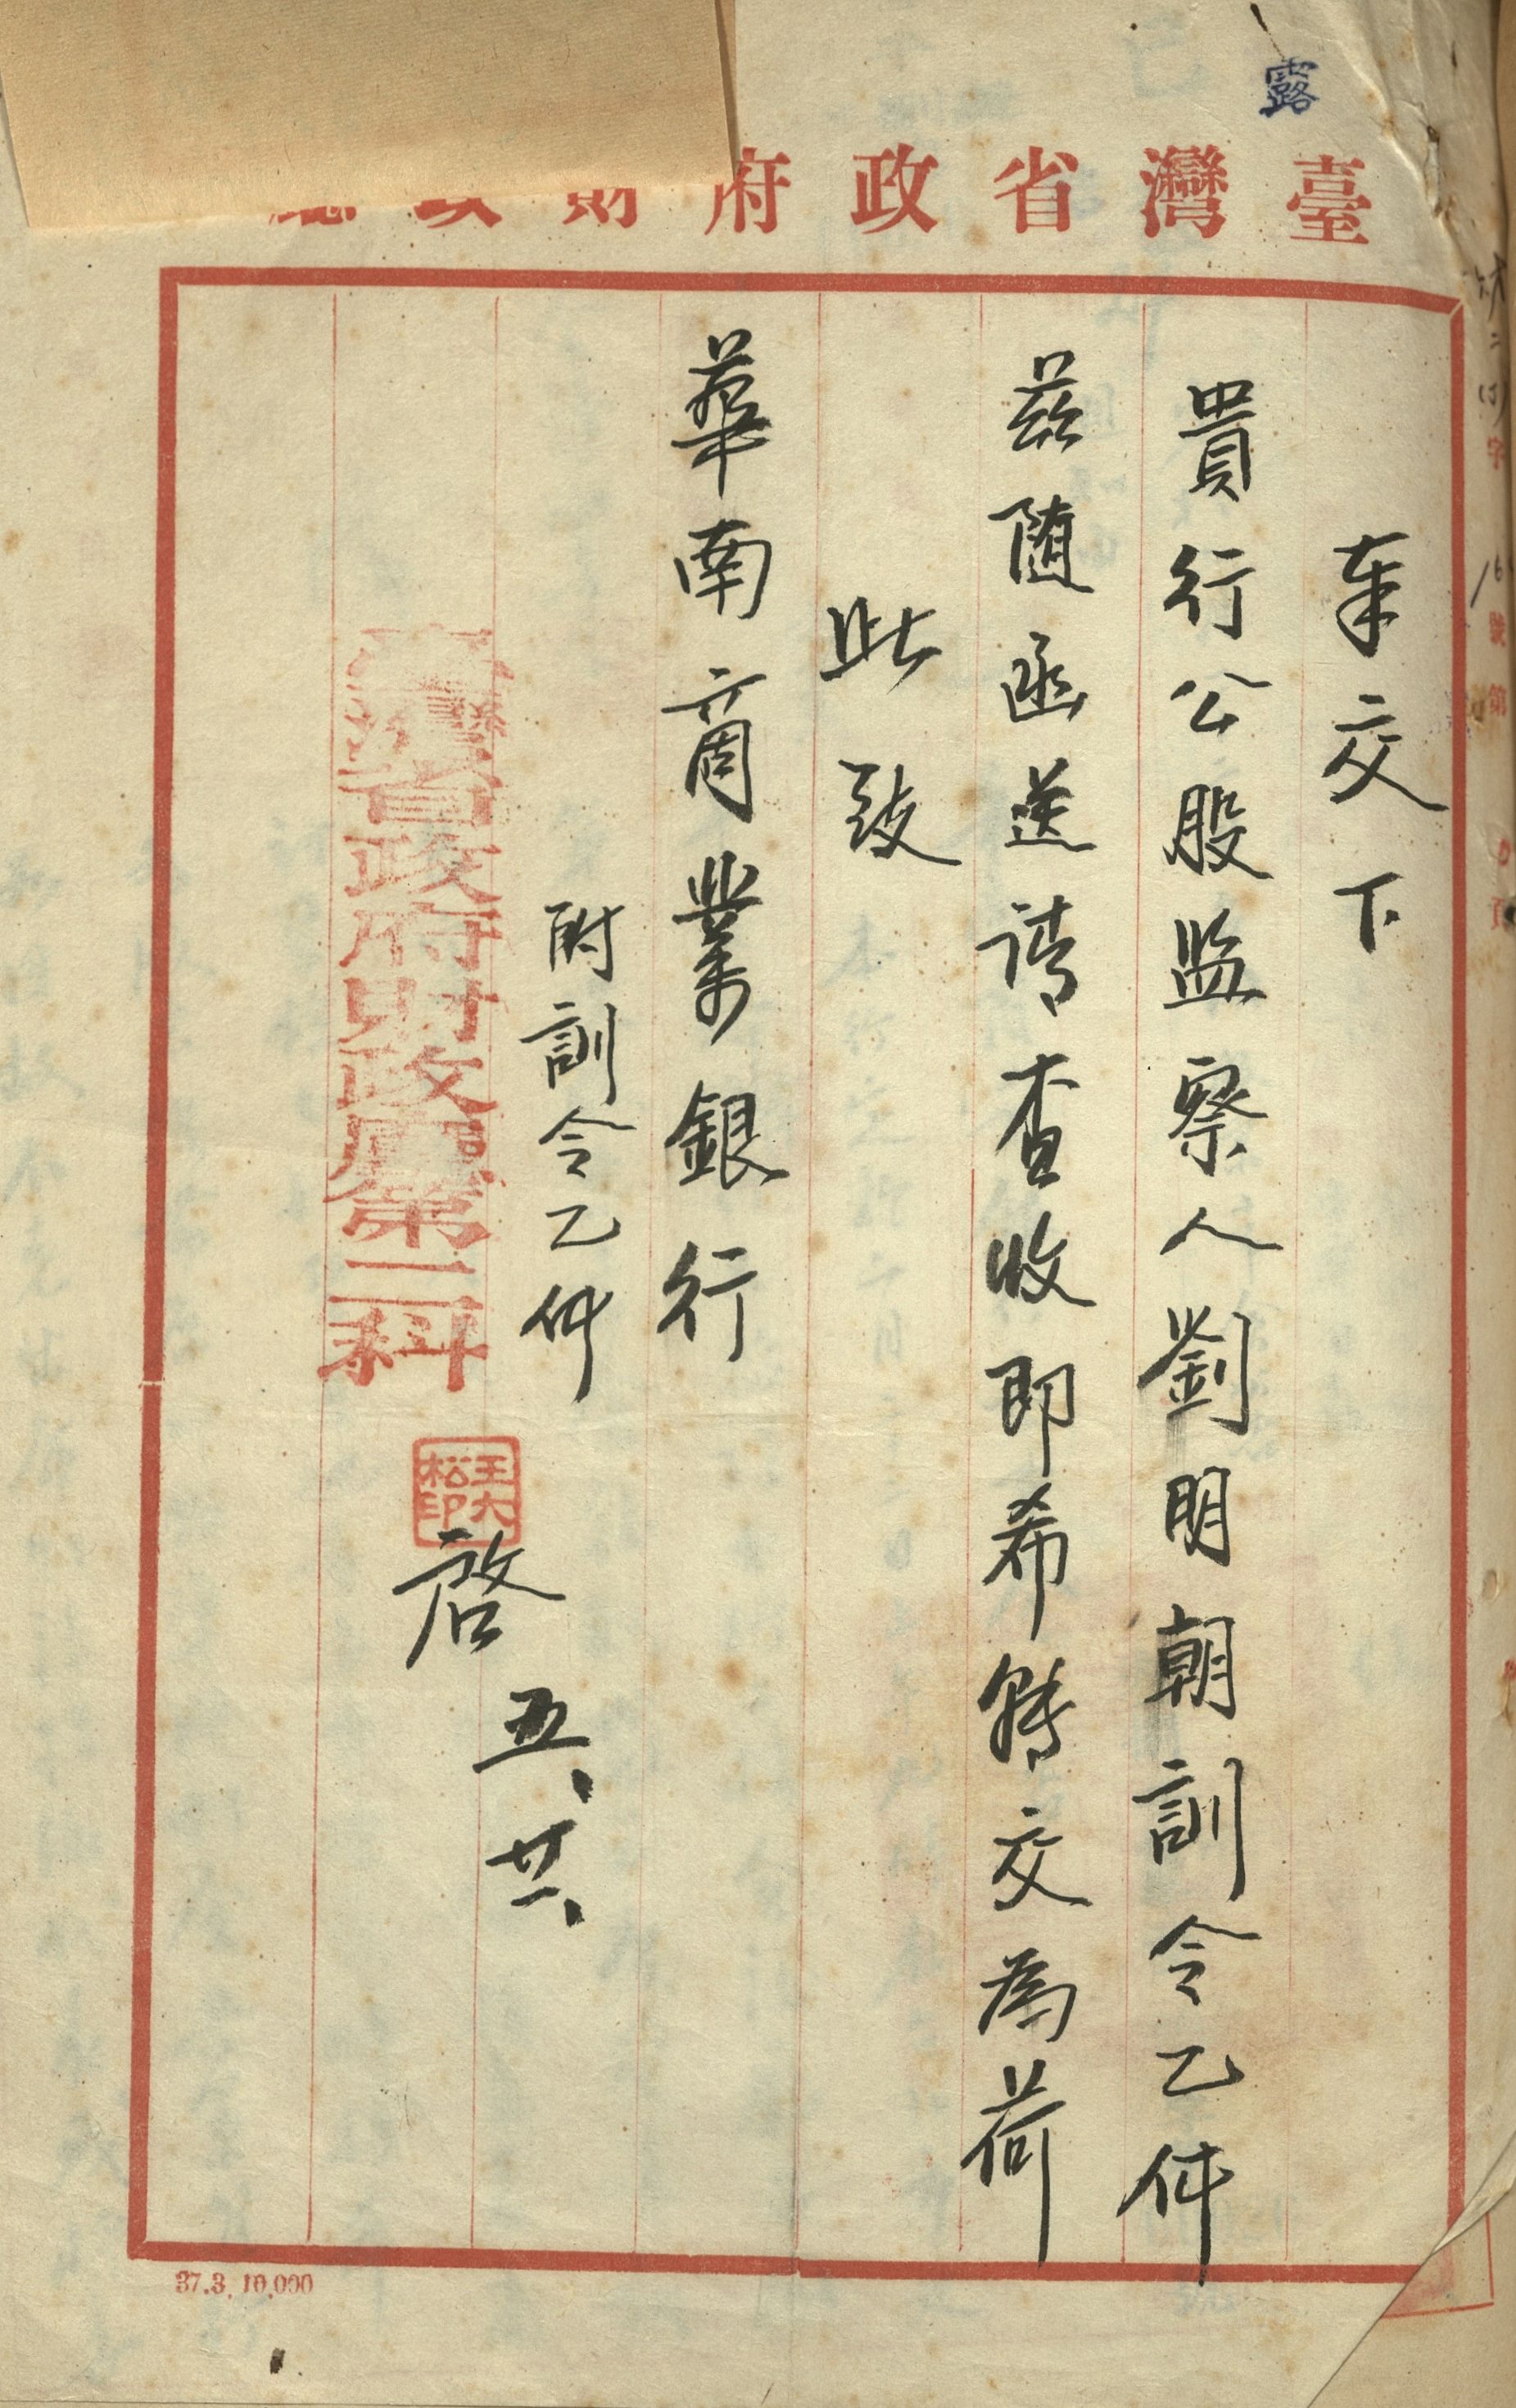 露
臺灣省政府財政廳
奉交下
貴行公股监察人劉明朝訓令乙件
兹随函送请查收即希转交為荷
此致
華南商業銀行
附訓令乙件
臺灣省政府財政廳第二科
王大松印
啓 五、廿一、
37.3. 10,000